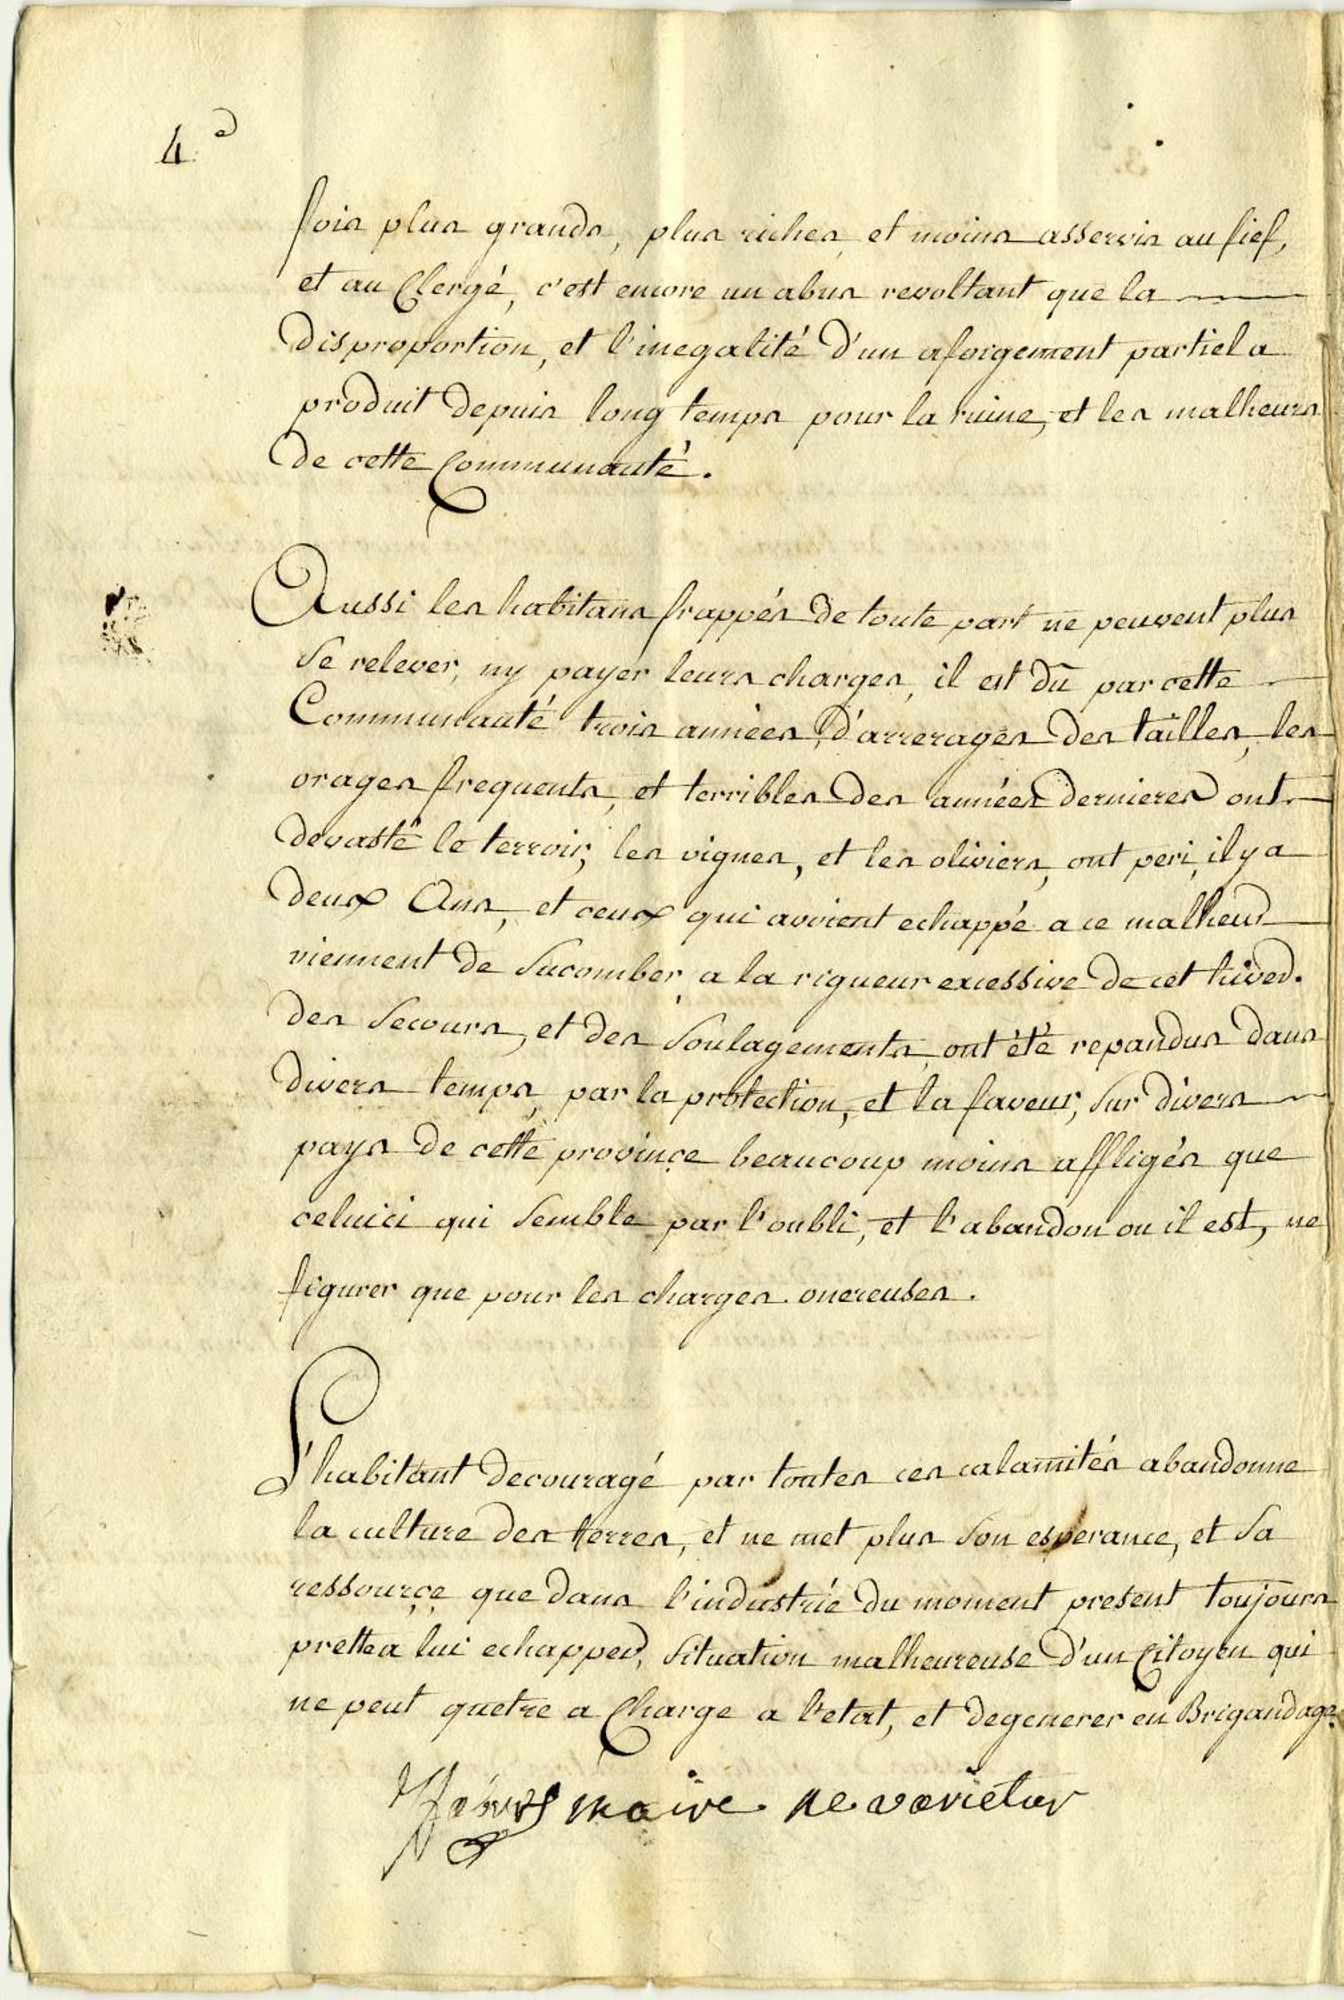 4.e
fois plus grands, plus riches, et moins asservis au fief,
et au Clergé, c'est encore un abus revoltant que la
disproportion, et l'inegalité d'un aforgement partiel a
produit depuis long temps pour la ruine, et les malheurs
de cette Communauté.
Aussi les habitans frappés de toute part ne peuvent plus
se relever, ny payer leurs charges, il est dû par cette
Communauté trois années d'arrerages des tailles, les
orages frequents, et terribles des années dernieres ont
devasté le terroir, les vignes, et les oliviers, ont peri, il y a
deux Ans, et ceux qui avoient echappé a ce malheur
viennent de sucomber a la rigueur excessive de cet hiver.
des secours, et des soulagements, ont été repandus dans
divers temps, par la protection, et la faveur, sur divers
pays de cette provinçe beaucoup moins affligés que
celuici qui semble par l'oubli, et l'abandon ou il est, ne
figurer que pour les charges onereuses.
L'habitant decouragé par toutes ces calamités abandonne
la culture des terres, et ne met plus son esperance, et sa
ressourçe que dans l'industrie du moment present toujours
prette a lui echapper, situation malheureuse d'un Citoyen qui
ne peut quetre a Charge a l'etat, et degenerer en Brigandage.
maire ne varietur